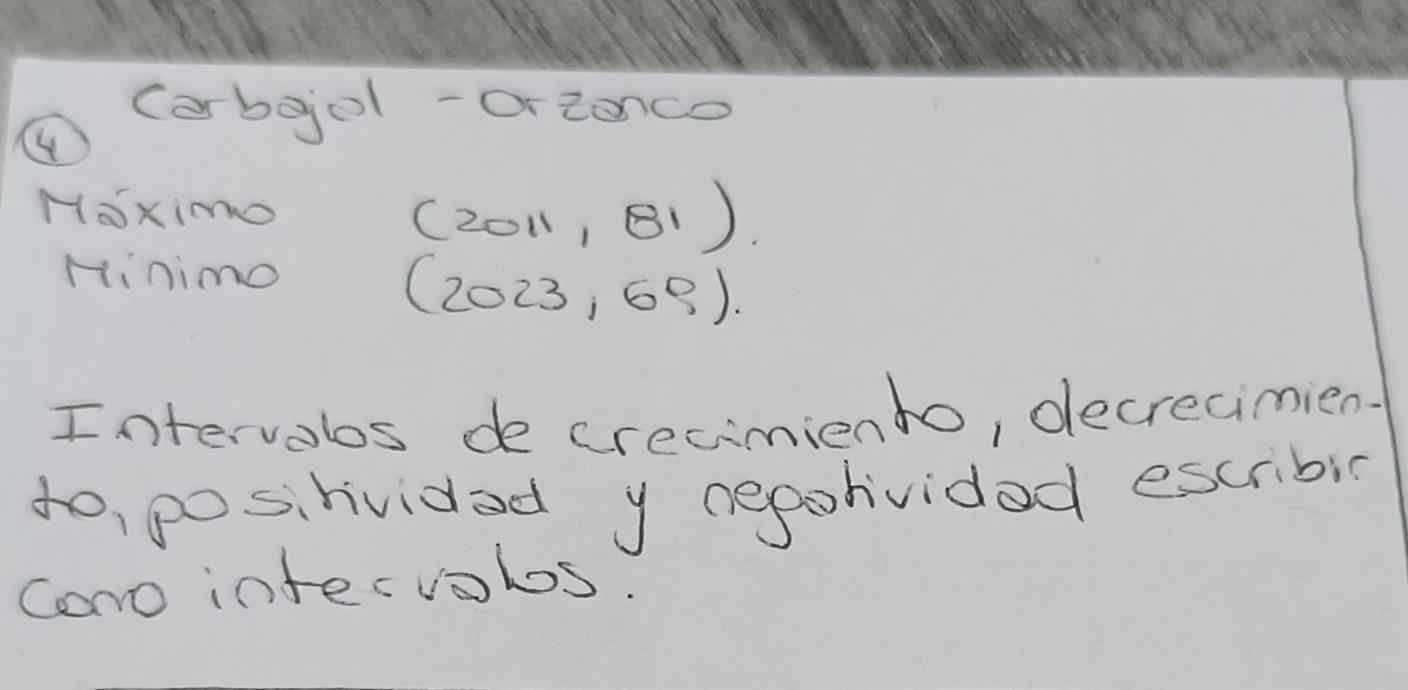 Carbajal - Orzanco
4
Máximo (2011, 81).
Mínimo (2023, 69).
Intervalos de crecimiento, decrecimien-
to, positividad y negatividad escribir
como intervalos.